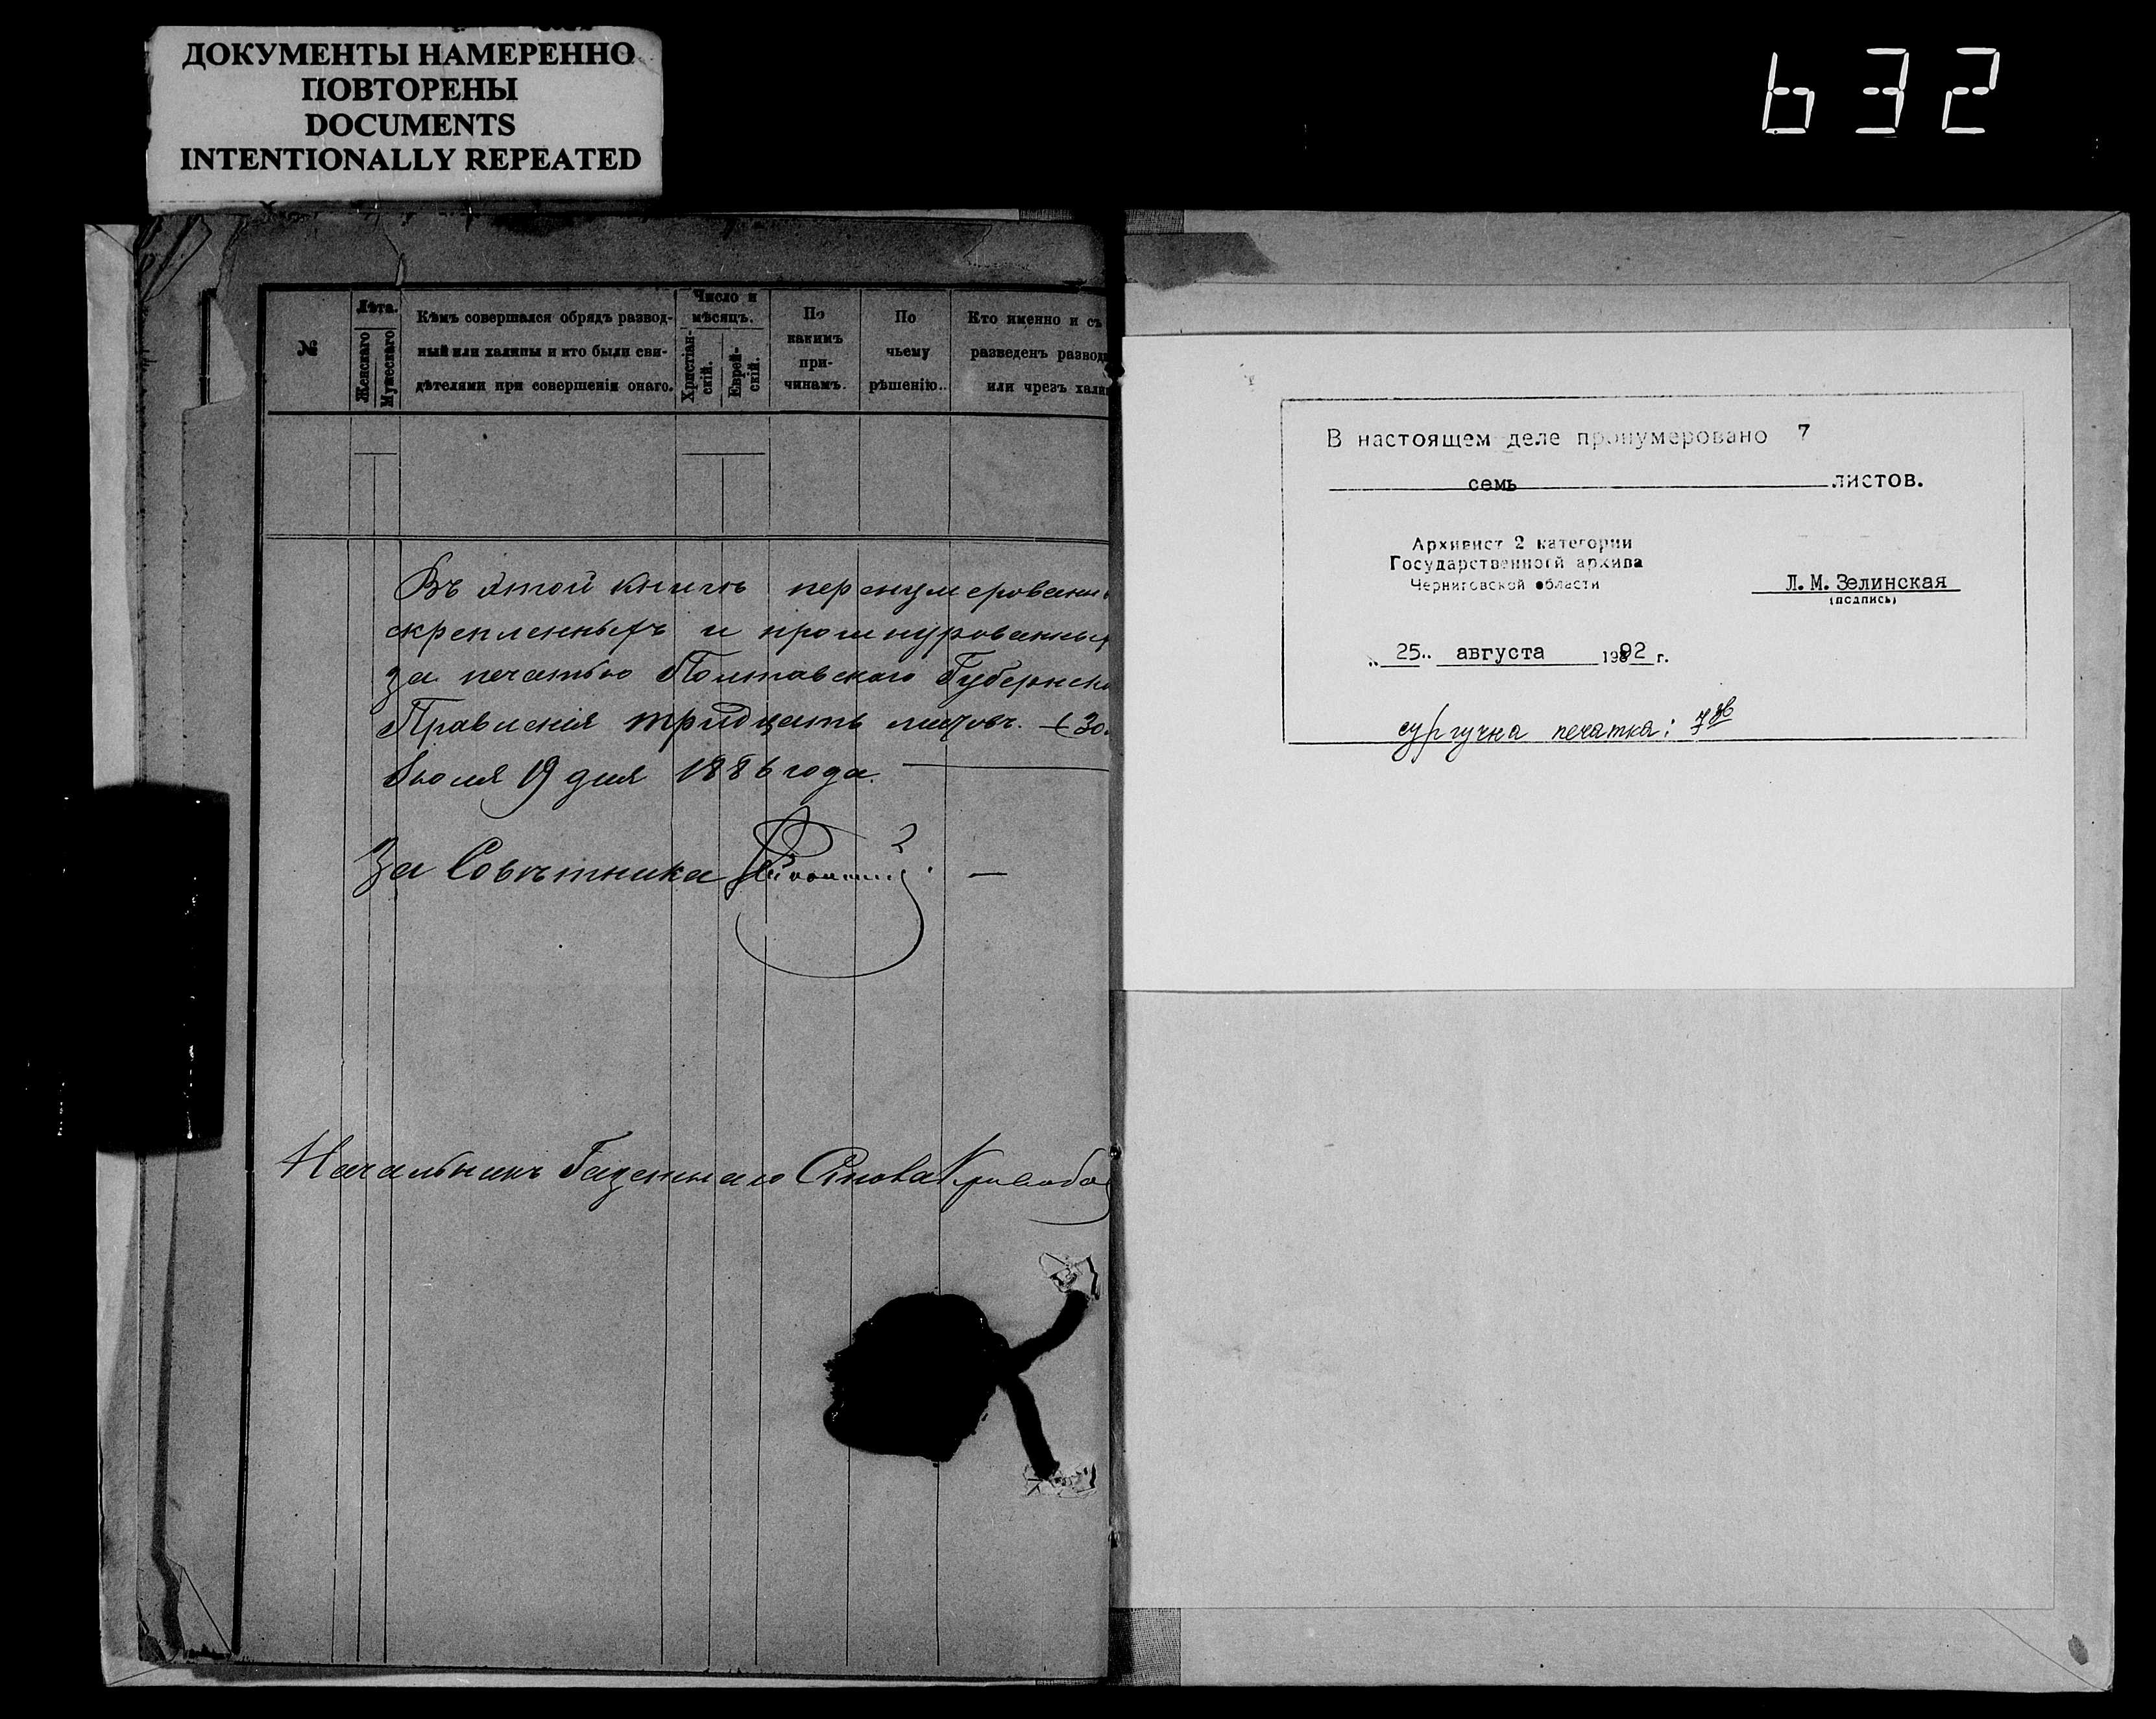 ДОКУМЕНТЫ НАМЕРЕННО
ПОВТОРЕНЫ
DOCUMENTS
INTENTIONALLY REPEATED
632
№
Лѣта.
Женскаго
Мужескаго
Кѣмъ совершался обрядъ развод-
ный или халицы и кто были сви-
дѣтелями при совершеніи онаго.
Число и
мѣсяцъ.
Христіан-
скій.
Еврей-
скій.
По
какимъ
при-
чинамъ.
По
чьему
рѣшенію.
Кто именно и съ
разведенъ развод
или чрезъ хали
Въ этой книгѣ перенумерованны
скрепленныхъ и прошнурованных
за печатью Полтавскаго Губернск
Правленія тридцать листовъ. (30.
Іюля 19 дня 1886 года.
За Совѣтника
Начальникъ Газетнаго Стола
В настоящем деле пронумеровано 7
семь листов.
Архивист 2 категории
Государственной архива
Черниговской области
Л.М.Зелинская
(подпись)
„ 25 „ августа 1992 г.
сургучна печатка: 7зв